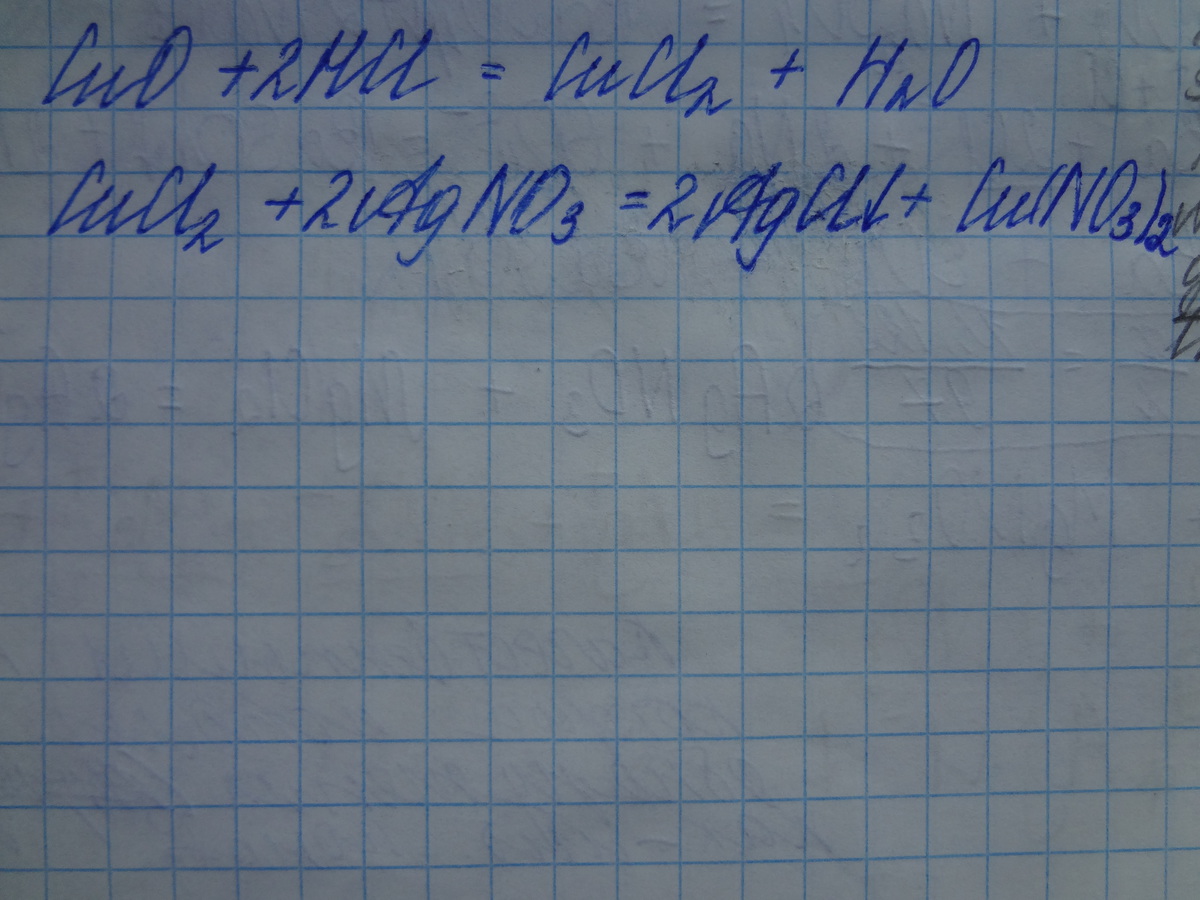 CuO + 2HCl = CuCl₂ + H₂O
CuCl₂ + 2AgNO₃ = 2AgCl↓ + Cu(NO₃)₂